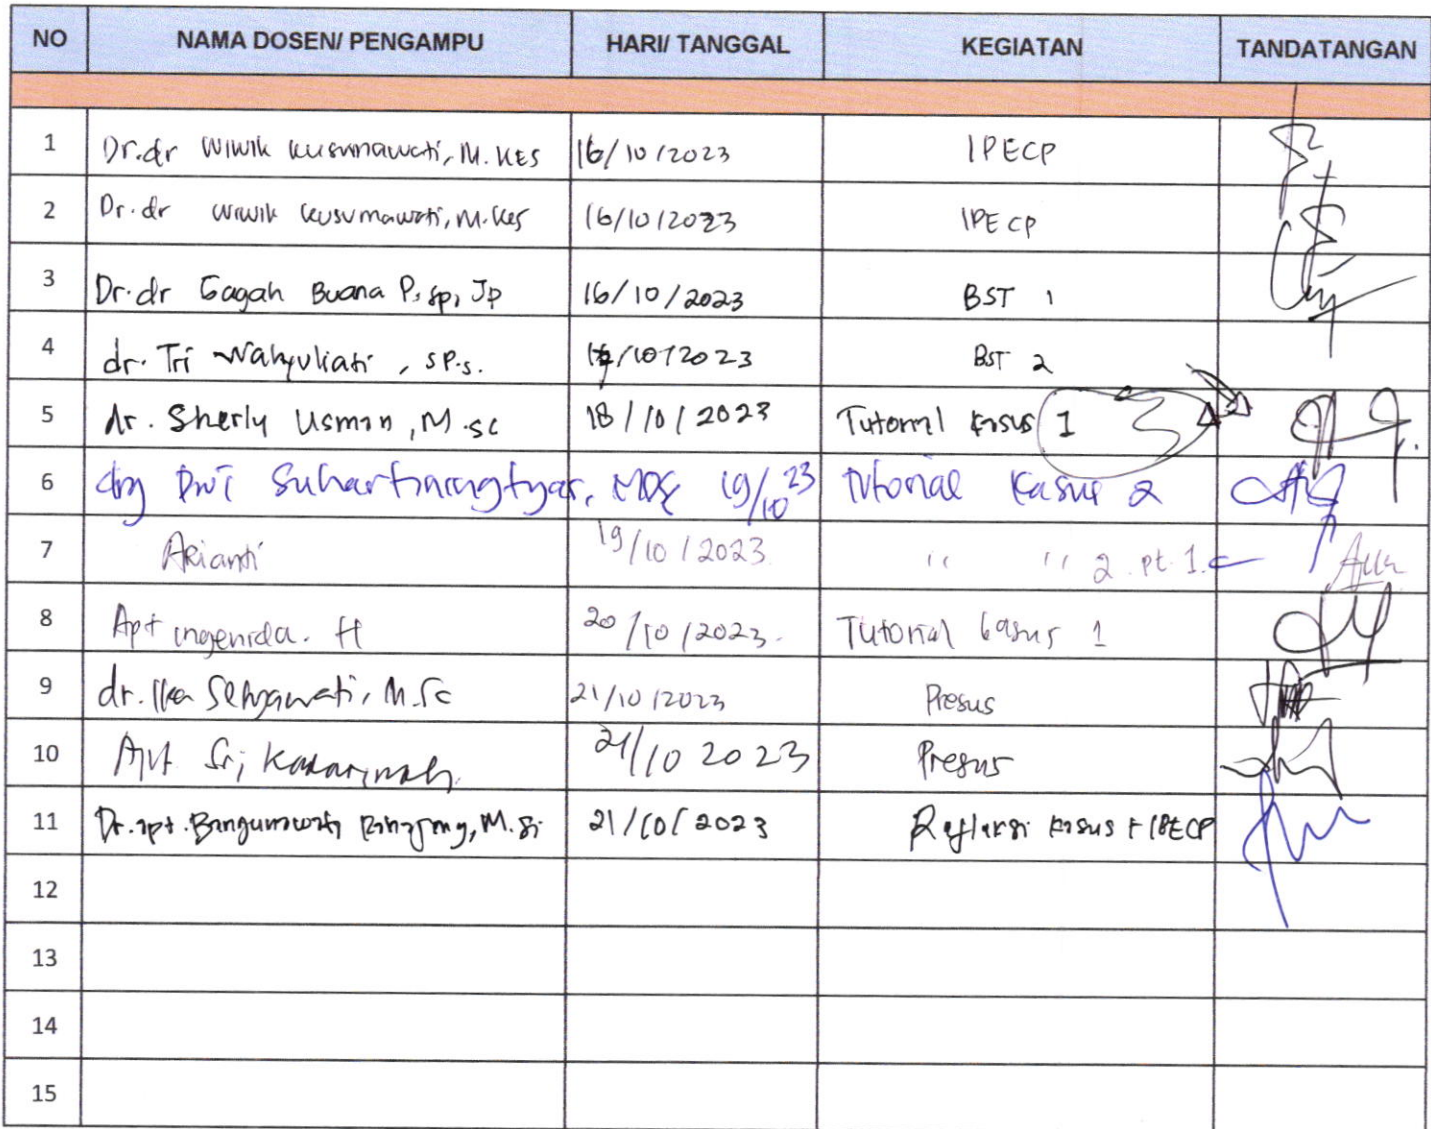 NO NAMA DOSEN/ PENGAMPU HARI/ TANGGAL KEGIATAN TANDATANGAN
1 Dr.dr Wiwik Kusumawati, M.KES 16/10/2023 IPECP
2 Dr.dr Wiwik Kusumawati, M.Kes 16/10/2023 IPECP
3 Dr.dr Gagah Buana P, Sp, Jp 16/10/2023 BST 1
4 dr. Tri Wahyuliati, SP.s. /10/2023 BST 2
5 dr. Sherly Usman, M.sc 18/10/2023 Tutorial kasus 1
6 drg Dwi Suhartiningtyas, MDSc 19/10 23 Tutorial kasus 2
7 Arianti 19/10/2023 " " 2 pt. 1.
8 Apt ingenida. H 20/10/2023. Tutorial kasus 1
9 dr. Ika Setyawati, M.Sc 21/10/2023 Presus
10 Apt Sri Kadarinah 21/10 2023 Presus
11 Dr.apt. M.Si 21/10/2023 Refleksi kasus + IPECP
12
13
14
15